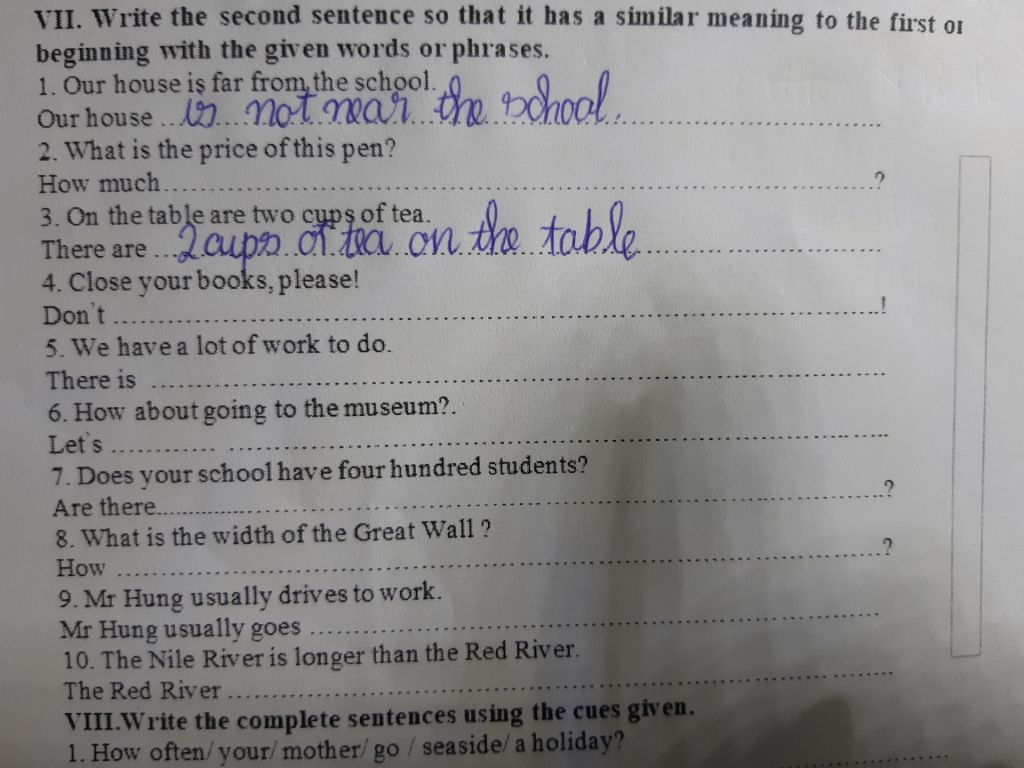 VII. Write the second sentence so that it has a similar meaning to the first or
beginning with the given words or phrases.
1. Our house is far from the school.
Our house ... is not near the school. ...
2. What is the price of this pen?
How much.......................................................?
3. On the table are two cups of tea.
There are ... 2 cups of tea on the table ...
4. Close your books, please!
Don't .......................................................!
5. We have a lot of work to do.
There is .......................................................
6. How about going to the museum?.
Let's ............ ...........................................
7. Does your school have four hundred students?
Are there.......................................................?
8. What is the width of the Great Wall ?
How .......................................................?
9. Mr Hung usually drives to work.
Mr Hung usually goes .......................................................
10. The Nile River is longer than the Red River.
The Red River .......................................................
VIII.Write the complete sentences using the cues given.
1. How often/ your/ mother/ go / seaside/ a holiday?